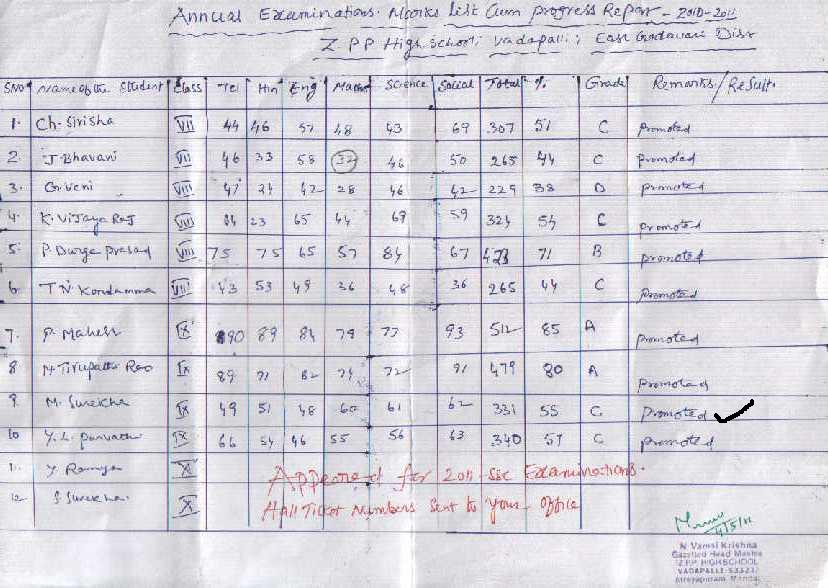 Annual Examinations. Marks list Cum progress Report - 2010-2011
Z PP High school, Vadapalli, East Godavari Dist
SNO Name of the Student Class Tel Hin Eng Maths Science Social Total % Grade Remarks/Result.
1. Ch. Sirisha VII 44 46 57 48 43 69 307 51 C promoted
2 J. Bhavani VII 46 33 58 32 46 50 265 44 C promoted
3. G. Veni VIII 47 24 42 28 46 42 229 38 D promoted
4. K. Vijaya Raj VIII 64 23 65 44 69 59 324 54 C promoted
5. P. Durga prasad VIII 75 75 65 57 84 67 423 71 B promoted
6. T N Kondamma VIII 43 53 49 36 48 36 265 44 C promoted
7. P. Mahesh IX 90 89 84 79 77 93 512 85 A Promoted
8 N. Tirupathi Rao IX 89 71 82 74 72 91 479 80 A promoted
9 M. Surekha IX 49 51 48 60 61 62 331 55 C promoted
10 Y. L. parvathi IX 66 54 46 55 56 63 340 57 C promoted
11. Y Ramya X Appeared for 2011-SSC Examinations.
12 S Surekha. X Hall Ticket Numbers sent to your office
4/5/11
N Vamsi Krishna
Gazetted Head Master
Z.P.P HIGH SCHOOL
VADAPALLI-533237
Atreyapuram Mandal